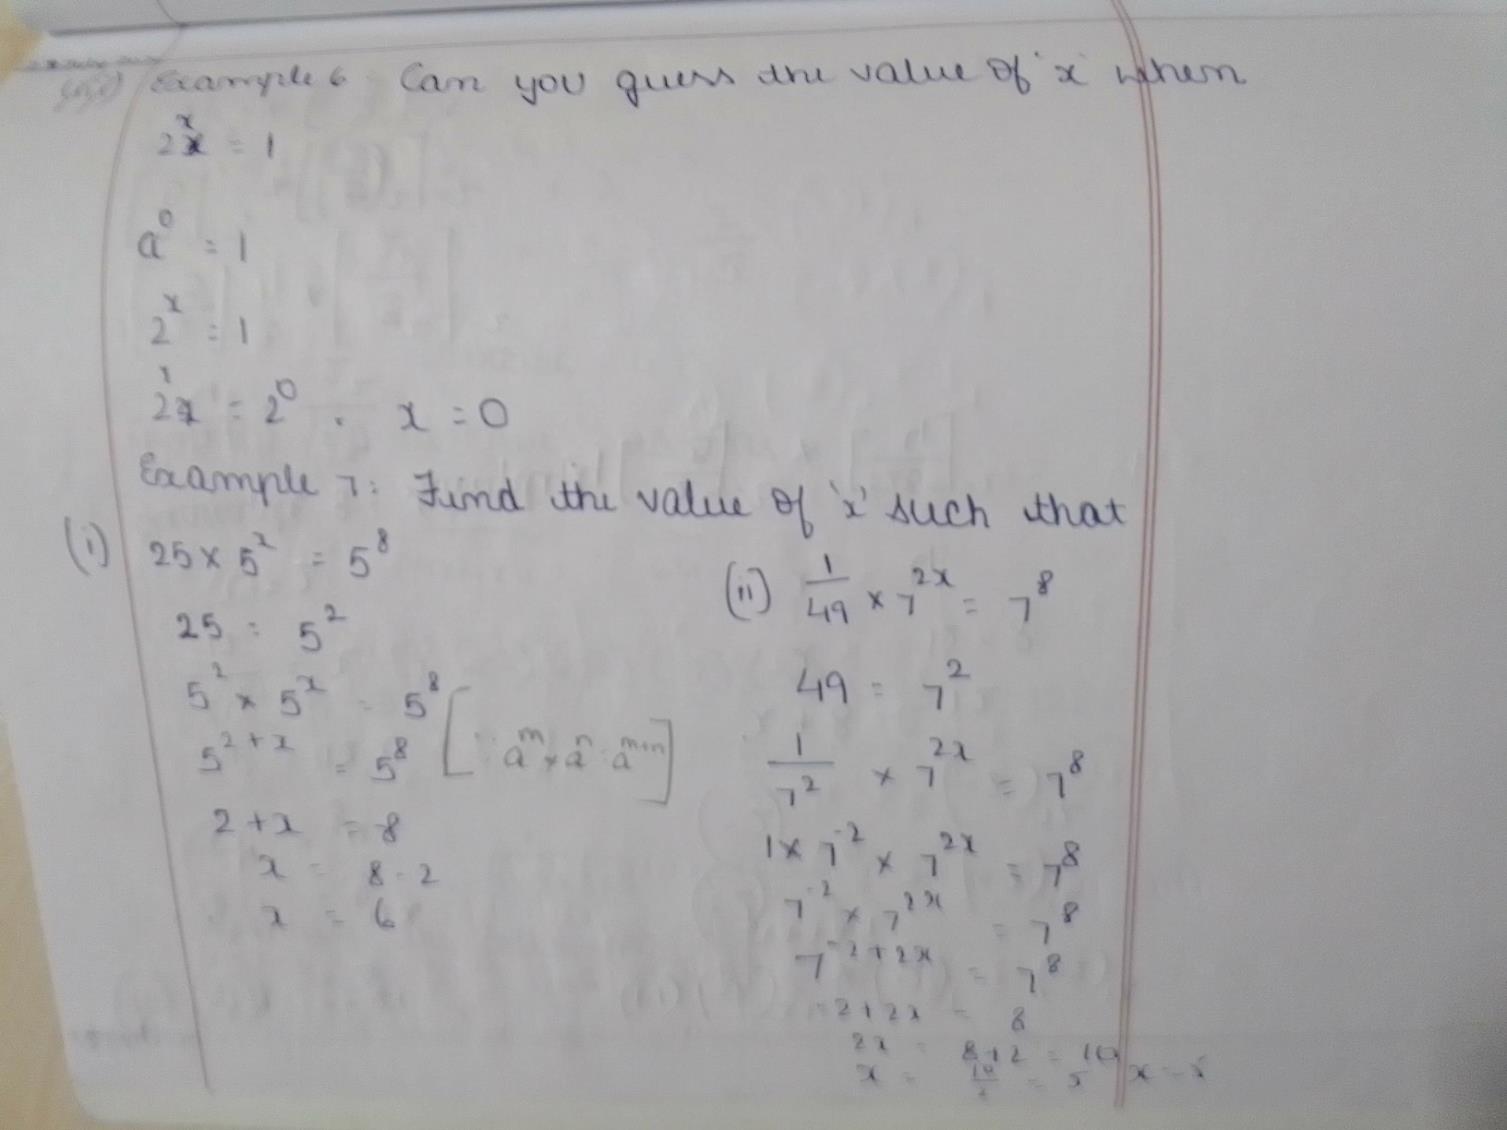 Example 6 Can you guess the value of 'x' when
2ˣ = 1
a⁰ = 1
2ˣ = 1
2ˣ = 2⁰ . x = 0
Example 7: Find the value of 'x' such that
(i) 25 × 5ˣ = 5⁸
25 = 5²
5² × 5ˣ = 5⁸
5²⁺ˣ = 5⁸ [∵ aᵐ × aⁿ = aᵐ⁺ⁿ]
2 + x = 8
x = 8 - 2
x = 6
(ii) 1/49 × 7²ˣ = 7⁸
49 = 7²
1/7² × 7²ˣ = 7⁸
1 × 7⁻² × 7²ˣ = 7⁸
7⁻² × 7²ˣ = 7⁸
7⁻²⁺²ˣ = 7⁸
-2 + 2x = 8
2x = 8 + 2 = 10
x = 10/2 = 5 x = 5